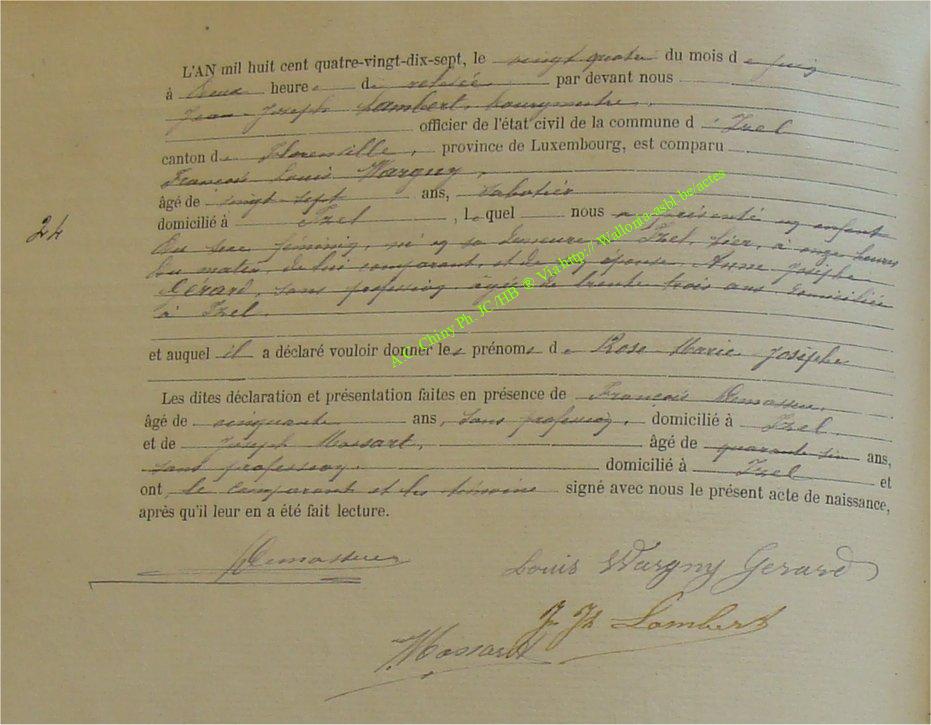 L'AN mil huit cent quatre-vingt-dix-sept, le vingt quatre du mois de juin
à deux heures de relevée par devant nous
Jean Joseph Lambert, bourgmestre,
officier de l'état civil de la commune d'Izel
canton de Florenville, province de Luxembourg, est comparu
François Louis Wargny,
âgé de vingt sept ans, sabotier
domicilié à Izel, lequel nous a présenté un enfant
24
du sexe féminin, né en sa demeure à Izel, hier, à onze heures
du matin, de lui comparant, et de son épouse, Anne Josèphe
Gérard, sans profession, âgée de trente trois ans, domiciliée
à Izel.
et auquel il a déclaré vouloir donner les prénoms de Rose Marie Josèphe
Les dites déclaration et présentation faites en présence de François Demasseu,
âgé de cinquante ans, sans profession, domicilié à Izel
et de Joseph Massart, âgé de quarante six ans,
sans profession, domicilié à Izel et
ont le comparant et les témoins signé avec nous le présent acte de naissance,
après qu'il leur en a été fait lecture.
Louis Wargny Gerard
J. Jh Lambert
Massart
A.C. Chiny Ph. JC/HB ® Via http:// Wallonia-asbl.be/actes